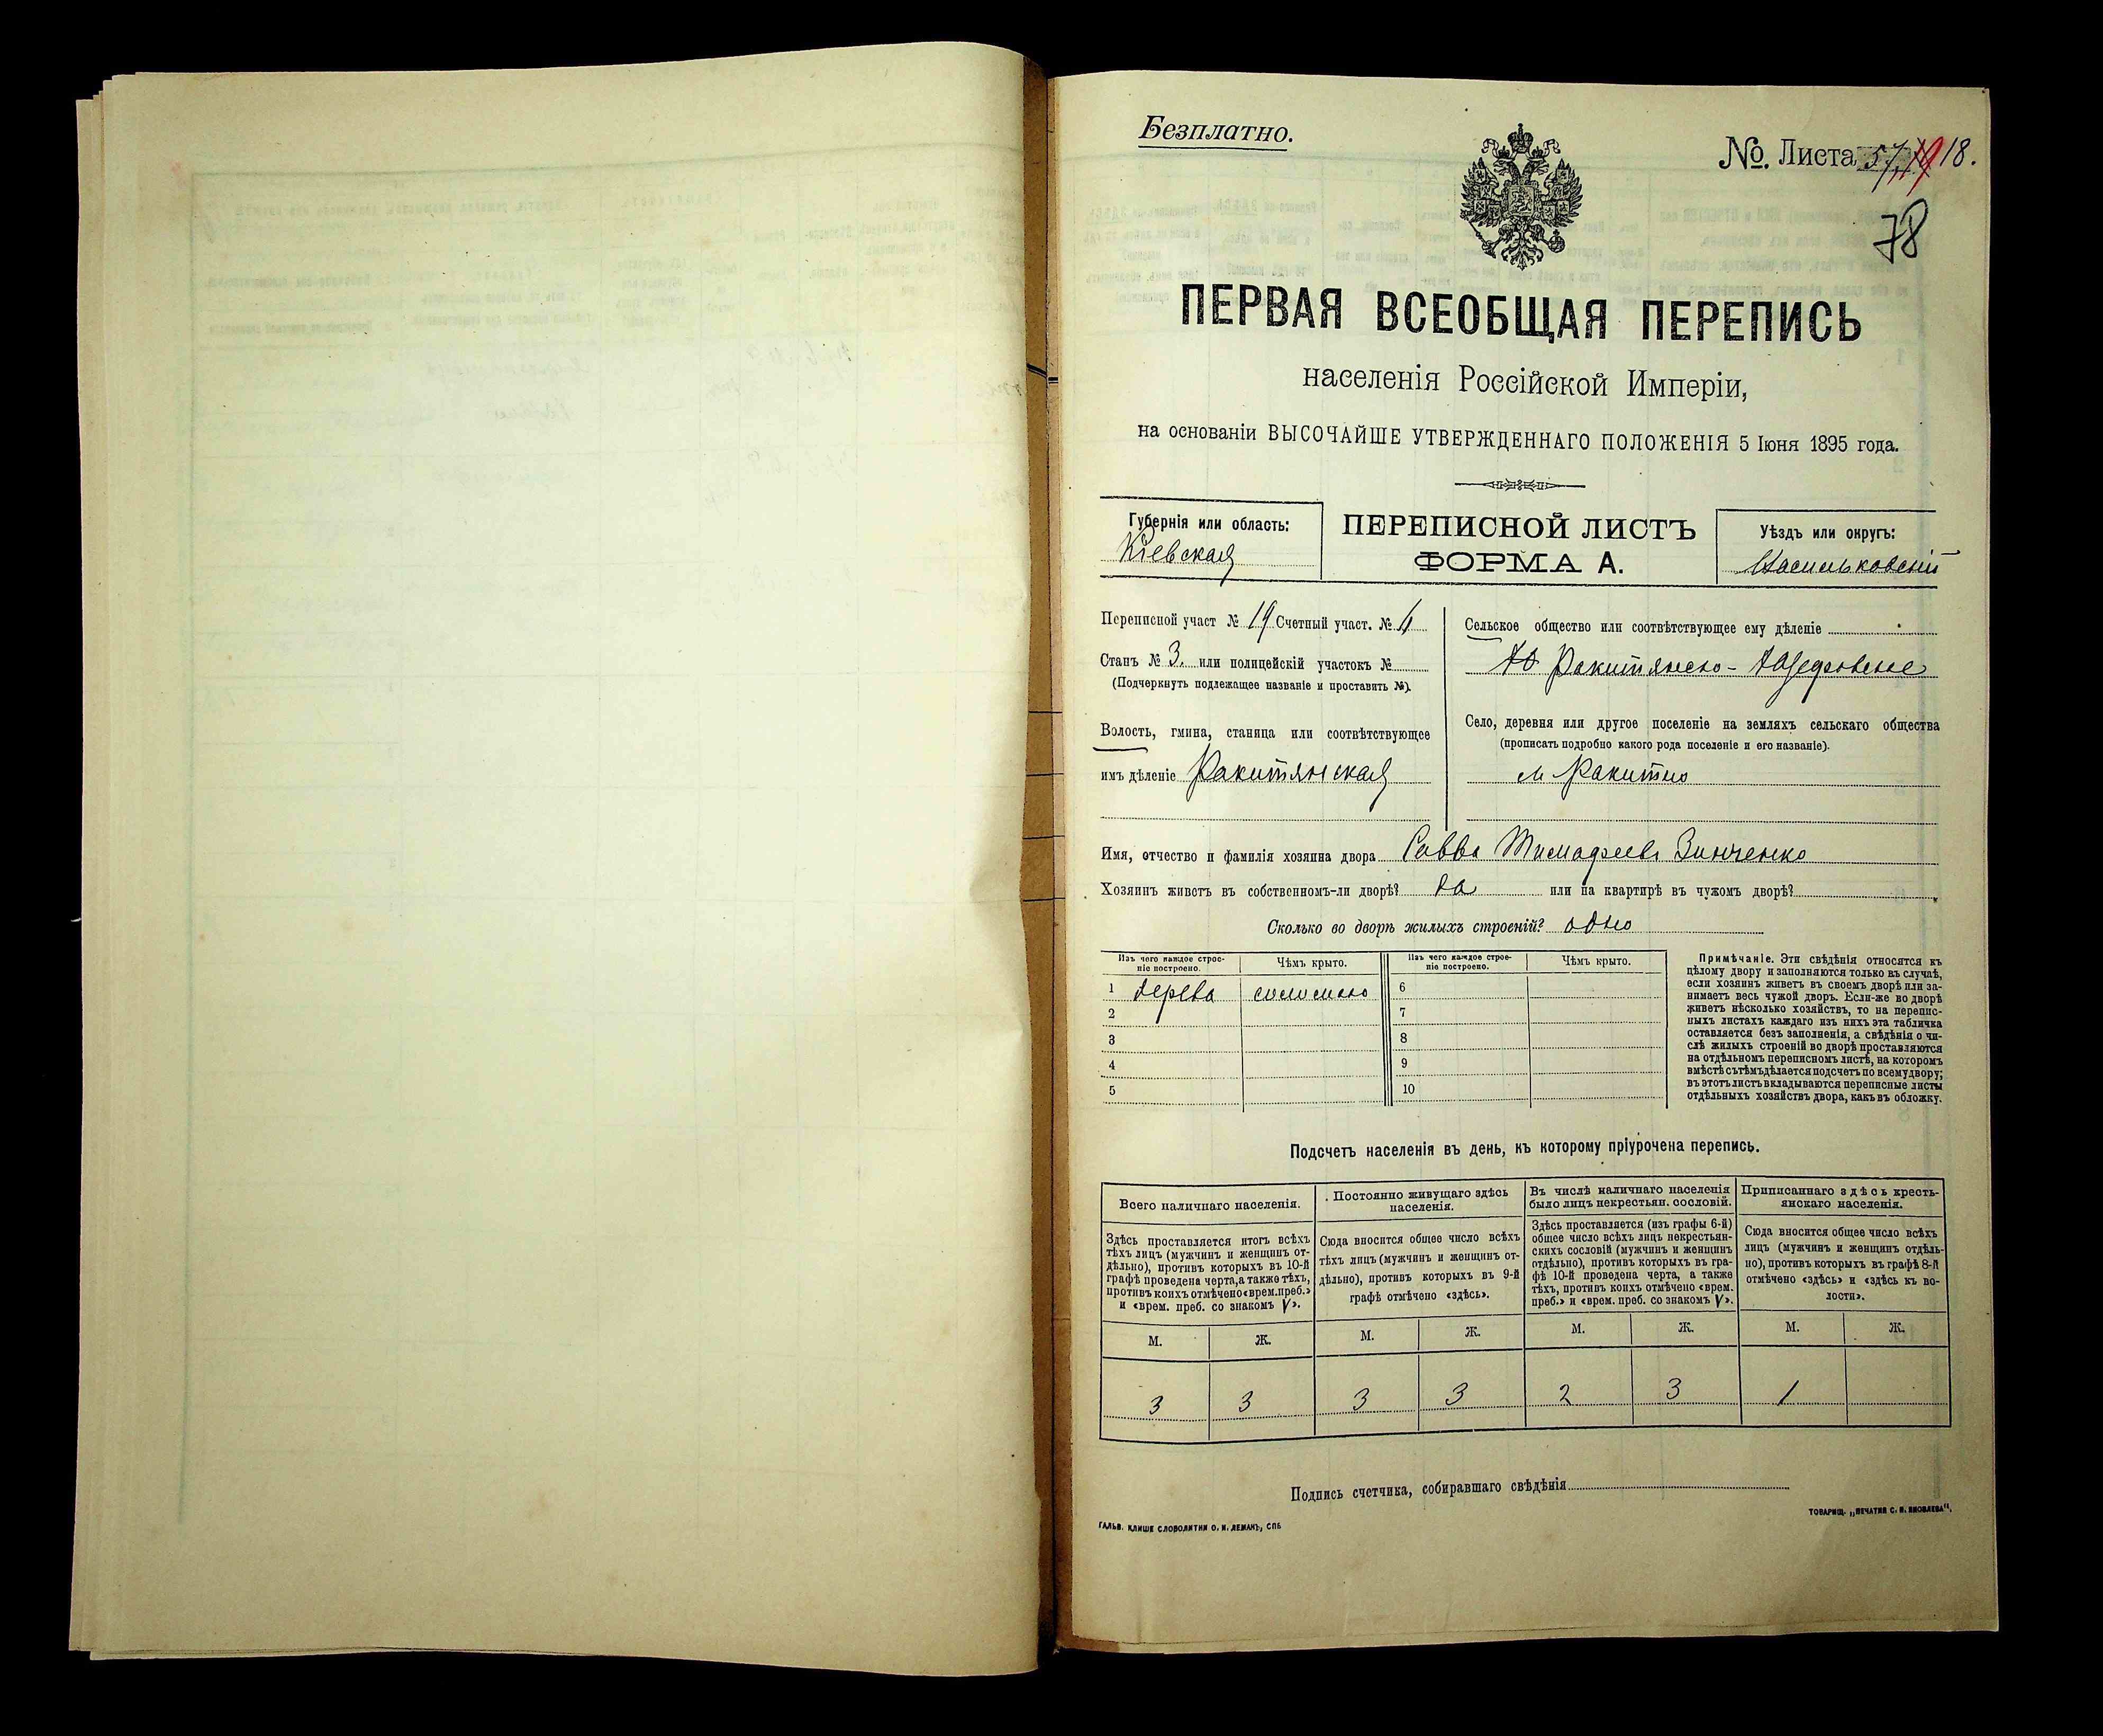 Безплатно.
№. Листа 18.
78
ПЕРВАЯ ВСЕОБЩАЯ ПЕРЕПИСЬ
населенія Россійской Имперіи,
на основаніи ВЫСОЧАЙШЕ УТВЕРЖДЕННАГО ПОЛОЖЕНІЯ 5 Іюня 1895 года.
Губернія или область:
Кіевская
ПЕРЕПИСНОЙ ЛИСТЪ
ФОРМА А.
Уѣздъ или округъ:
Васильковскій
Переписной участ № 19 Счетный участ. №
Станъ № 3. или полицейскій участокъ №
(Подчеркнуть подлежащее названіе и проставить №).
Волость, гмина, станица или соотвѣтствующее
имъ дѣленіе Ракитянская
Сельское общество или соотвѣтствующее ему дѣленіе
Ракитянско-
Село, деревня или другое поселеніе на земляхъ сельскаго общества
(прописать подробно какого рода поселеніе и его названіе).
м Ракитно
Имя, отчество и фамилія хозяина двора Савва Тимофеевъ Зинченко
Хозяинъ живетъ въ собственномъ-ли дворѣ? да или на квартирѣ въ чужомъ дворѣ?
Сколько во дворѣ жилыхъ строеній? одно
Изъ чего каждое строе-
ніе построено.
Чѣмъ крыто.
Изъ чего каждое строе-
ніе построено.
Чѣмъ крыто.
1 дерева соломою 6
2 7
3 8
4 9
5 10
Примѣчаніе. Эти свѣдѣнія относятся къ
цѣлому двору и заполняются только въ случаѣ,
если хозяинъ живетъ въ своемъ дворѣ или за-
нимаетъ весь чужой дворъ. Если-же во дворѣ
живетъ нѣсколько хозяйствъ, то на перепис-
ныхъ листахъ каждаго изъ нихъ эта табличка
оставляется безъ заполненія, а свѣдѣнія о чи-
слѣ жилыхъ строеній во дворѣ проставляются
на отдѣльномъ переписномъ листѣ, на которомъ
вмѣстѣ съ тѣмъ дѣлается подсчетъ по всему двору;
въ этотъ листъ вкладываются переписные листы
отдѣльныхъ хозяйствъ двора, какъ въ обложку.
Подсчетъ населенія въ день, къ которому пріурочена перепись.
Всего наличнаго населенія.
Здѣсь проставляется итогъ всѣхъ
тѣхъ лицъ (мужчинъ и женщинъ от-
дѣльно), противъ которыхъ въ 10-й
графѣ проведена черта, а также тѣхъ,
противъ коихъ отмѣчено «врем. преб.»
и «врем. преб. со знакомъ V».
Постоянно живущаго здѣсь
населенія.
Сюда вносится общее число всѣхъ
тѣхъ лицъ (мужчинъ и женщинъ от-
дѣльно), противъ которыхъ въ 9-й
графѣ отмѣчено «здѣсь».
Въ числѣ наличнаго населенія
было лицъ некрестьян. сословій.
Здѣсь проставляется (изъ графы 6-й)
общее число всѣхъ лицъ некрестьян-
скихъ сословій (мужчинъ и женщинъ
отдѣльно), противъ которыхъ въ гра-
фѣ 10-й проведена черта, а также
тѣхъ, противъ коихъ отмѣчено «врем.
преб.» и «врем. преб. со знакомъ V».
Приписаннаго здѣсь кресть-
янскаго населенія.
Сюда вносится общее число всѣхъ
лицъ (мужчинъ и женщинъ отдѣль-
но), противъ которыхъ въ графѣ 8-й
отмѣчено «здѣсь» и «здѣсь къ во-
лости».
М. Ж. М. Ж. М. Ж. М. Ж.
3 3 3 3 2 3 1
Подпись счетчика, собиравшаго свѣдѣнія
ГАЛЬВ. КЛИШЕ СЛОВОЛИТНИ О. И. ЛЕМАНЪ, СПБ
ТОВАРИЩ. „ПЕЧАТНЯ С. П. ЯКОВЛЕВА".